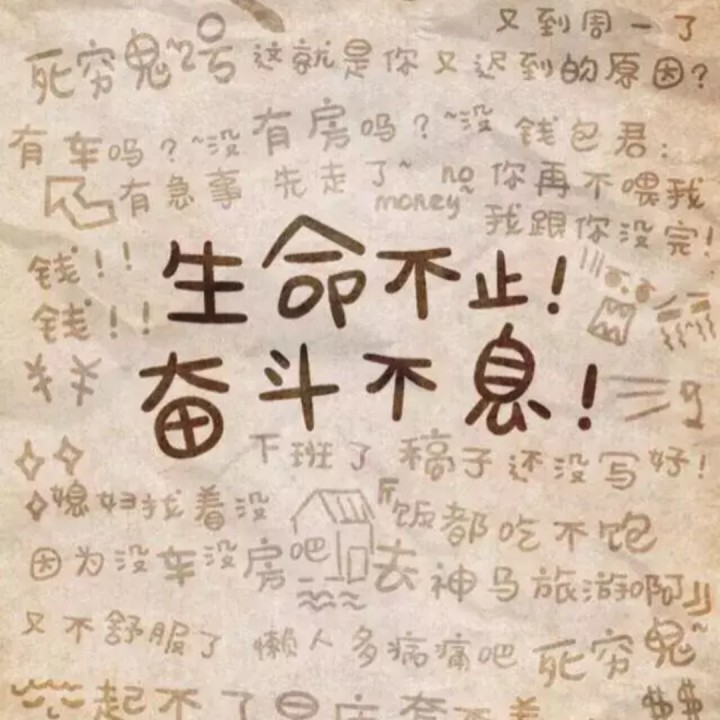 又到周一了
死穷鬼~2号 这就是你又迟到的原因?
有车吗?~没有房吗?~没 钱包君:
有急事 先走了~ no money~ 你再不喂我
我跟你没完!
钱!!
钱!!
¥¥
生命不止!
奋斗不息!
下班了 稿子还没写好!
媳妇找着没 斤饭都吃不饱
因为没车没房吧 去神马旅游啊
又不舒服了 懒人多病痛吧 死穷鬼~
起不了
$$